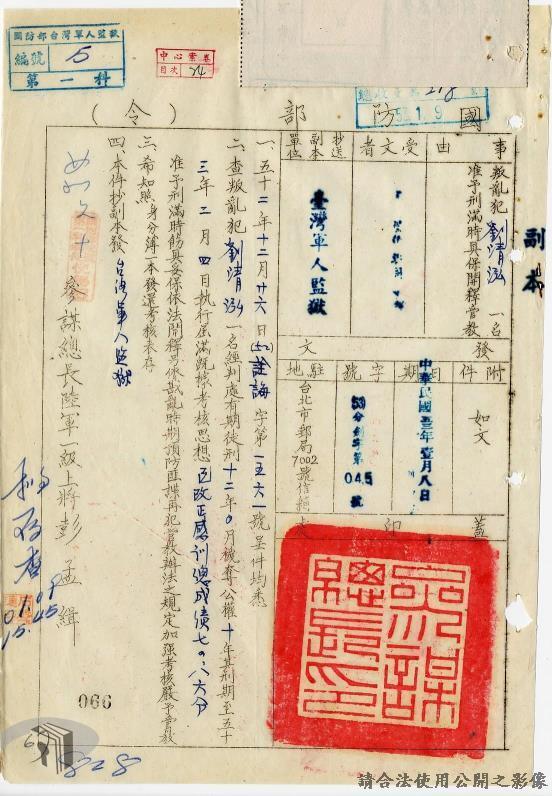 國防部台灣軍人監獄
編號 5
第一科
中心案卷
目次 24
副本
國防部（令）
事由
叛亂犯劉清泓一名
准予刑滿時具保開釋管教
受文者
抄送副本單位
臺灣軍人監獄
附件 如文
發文
日期 中華民國五三年壹月八日
字號
045號
駐地 台北市郵局7002號信箱
蓋印
參謀總長印
一、五十二年十二月廿六日(52)詮誨字第一五六一號呈件均悉
二、查叛亂犯劉清泓一名經判處有期徒刑十二年0月褫奪公權十年其刑期至五十
三年二月四日執行屆滿既據考核思想已改正感訓總成績七0.八六分
准予刑滿時飭具妥保依法開釋另依戡亂時期預防匪諜再犯管教辦法之規定加強考核嚴予管教
三、希知照身分簿一本發還考核表存
四、本件抄副本發台灣軍人監獄
參謀總長陸軍一級上將彭孟緝
01.09
15.45
066
828
請合法使用公開之影像